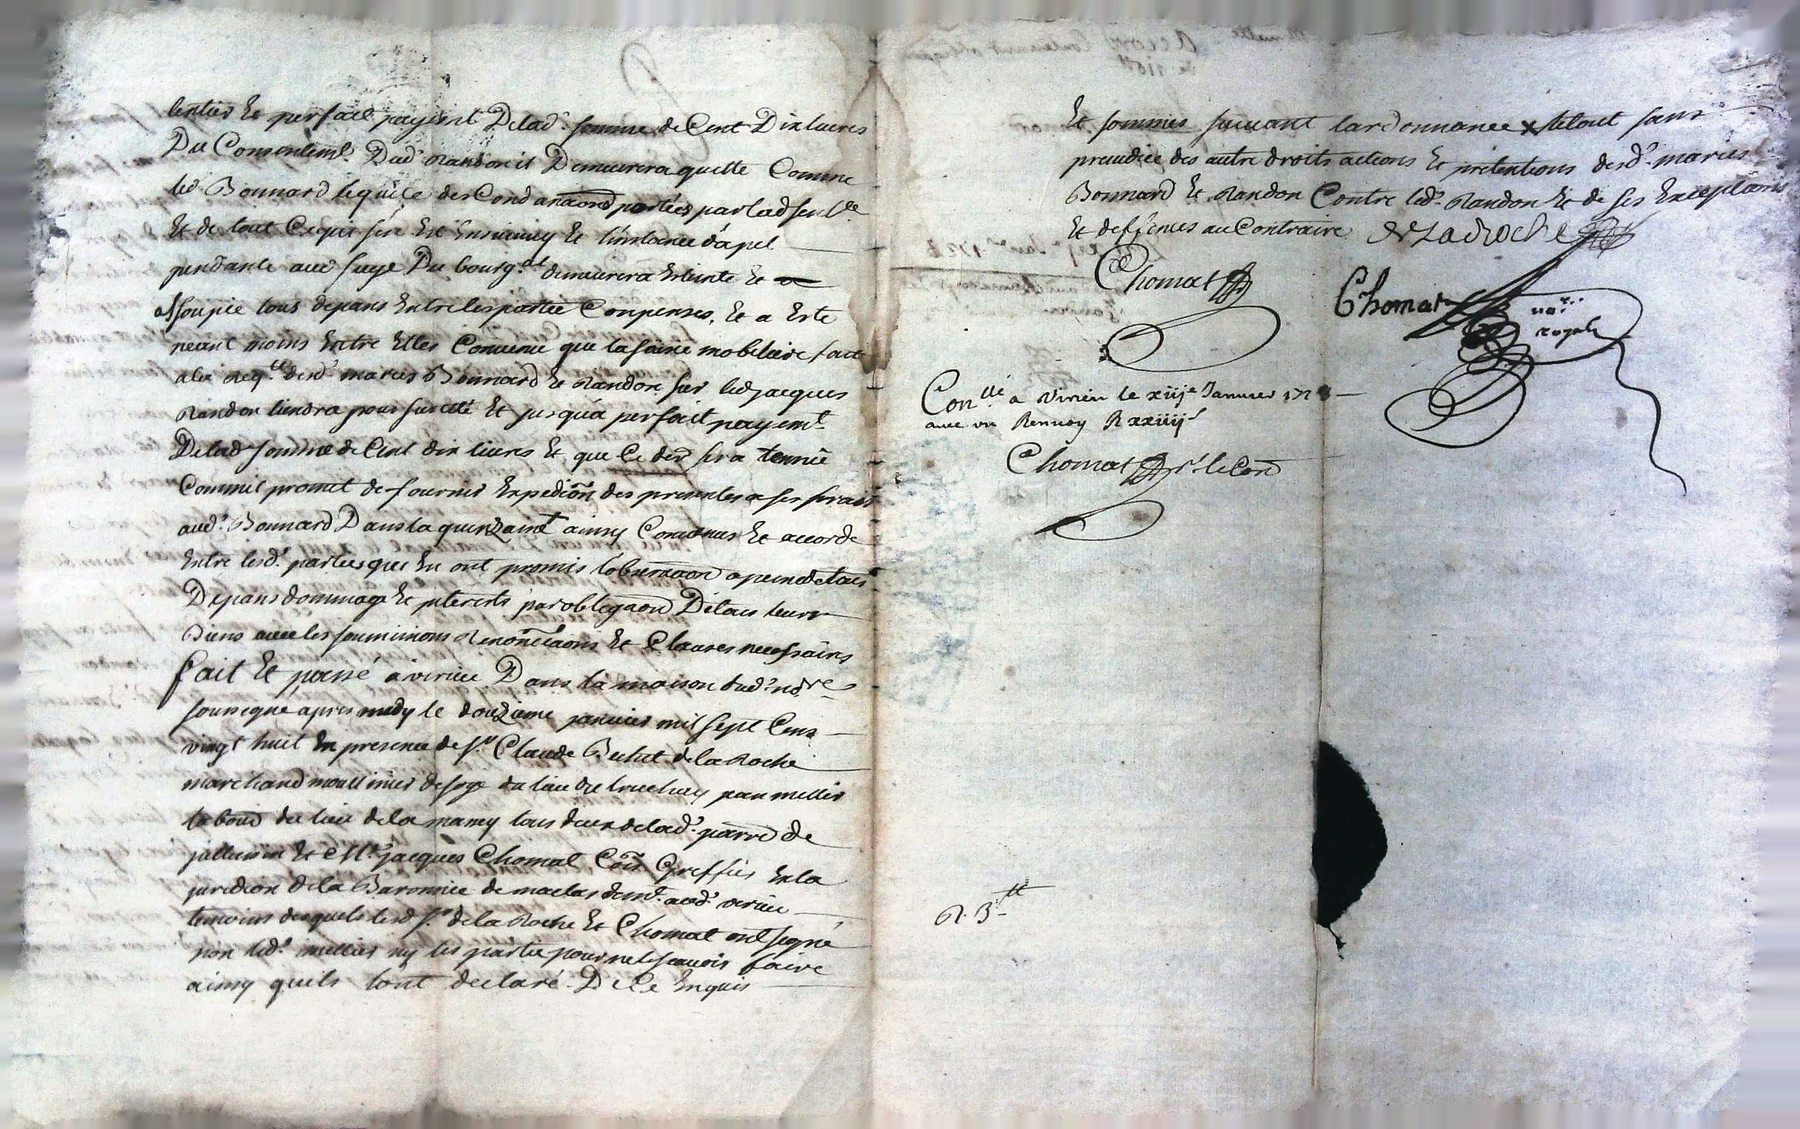 lentier et perfait payemt. Delad. somme de Cent Dix livres
Du Consentemt. Dud. Randon il Demeurera quitte Comme
led. Bonnard le quitte des Condamnaōns portées par lad. sentce
Et de tout Ce qui sen Est Ensuivy Et l'instance d'apel
pendante aud. siege Du bourg.al demeurera Eteinte Et
assoupie tous depans Entre les parties Conpensés, Et a Este
neant moins Entre Elles Convenu que la saisie mobiliaire fait
a la reqtte desd. mariés Bonnard Et Randon sur led. jacques
Randon tiendra pour sureté Et jusqu'a perfait payemt.
Delad. somme de Cent dix livres Et que Ce der. sera tenu
Commil promet de fournir Expediōn des presentes a ses frais
aud. Bonnard Dans la quinzaine ainsy Convenus Et accordé
Entre lesd. parties qui En ont promis l'observaōn a peine de tous
Depans dommage Et jnterests par obligaōn De tous leurs
Biens avec les soumissions Renonciaōns Et Clauses necessaires
fait Et passé a virieu Dans la maison dud. nore
sousigné apres midy le douzieme janvier mil sept Cens
vingt huit En presence de sr. Claude Buhet de la Roche
marchand moullinier de soye du lieu de jean mellier
du lieu de la mamy tous deux de lad. parre de
Et Mr. jacques Chomat Cōis Greffier En la
juridiōn de la Baronnie de maclas demt. aud. virieu
temoins desquels led. sr. de la Roche Et Chomat ont signé
non led. mellier ny les parties pour ne le scavoir faire
ainsy quils lont declaré. De Ce Enquis
Et sommés suivant lardonnance x Le tout sans
preiudice des autre droits actions Et pretentions desd. mariés
Bonnard Et Randon Contre led. Randon Et de ses Exceptions
Et deffences au Contraire DeLaRoche
Chomat
Chomat nore.
royal
Conllé a Virieu le xiije Janvier 172
avec un Renvoy R xxiiijs
Chomat pr. le Con
R. 3tt